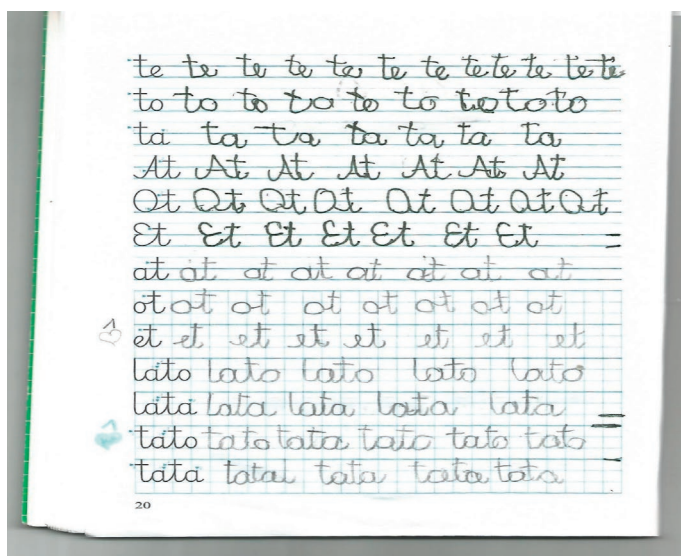 te te te te te te te te te te te te
to to to to to to to to to to
ta ta ta ta ta ta ta
At At At At At At At
Ot Ot Ot Ot Ot Ot Ot Ot
Et Et Et Et Et Et Et
at at at at at at at at
ot ot ot ot ot ot ot ot
et et et et et et et et
lato lato lato lato lato
lata lata lata lata lata
tato tato tata tato tato tato
tata tatal tata tata tata
20